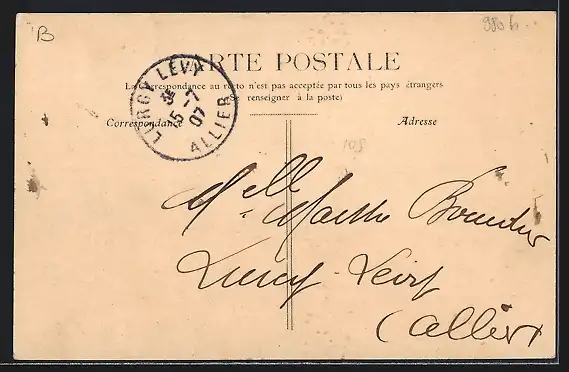 B
980 h
CARTE POSTALE
(La correspondance au recto n'est pas acceptée par tous les pays étrangers
se renseigner à la poste)
LURCY LEVY
5-7
07
ALLIER
Correspondance
Adresse
Melle Marthe
Lurcy-Levy
(Allier)